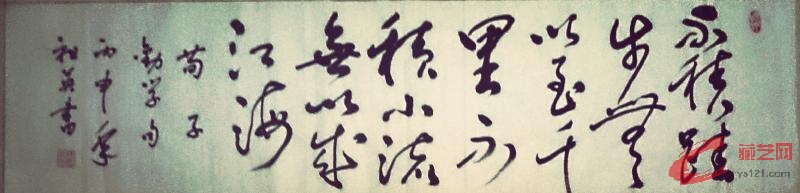 不积跬
步無
以至千
里不
積小流
無以成
江海
荀子
勸学句
丙申年
祖英書
藏艺网
ys121.com